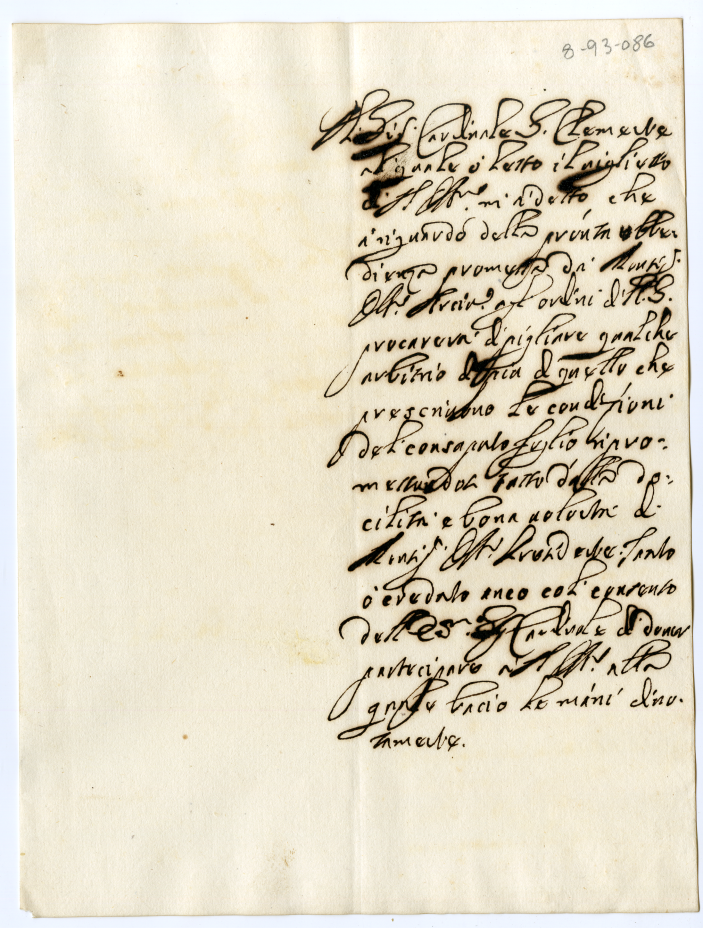 8-93-086
Il Sig. Cardinale S. Clemente
al quale ò letto il viglietto
di V. Ill.ma mi à detto che
a riguardo della pronta obbe-
dienza promessa da Monsig.
Ill.mo agl'ordini di N. S.
procurerà di pigliare qualche
arbitrio di più di quello che
prescrivono le condizioni
del consaputo foglio ripro-
mettendosi tutto dalla do-
cilità e bona volontà di
Monsig. Ill.mo Presidente. Tanto
ò creduto anco col consenso
dell' Em.mo Sig. Cardinale di dover
participare a V. Ill.ma alla
quale bacio le mani divo-
tamente.